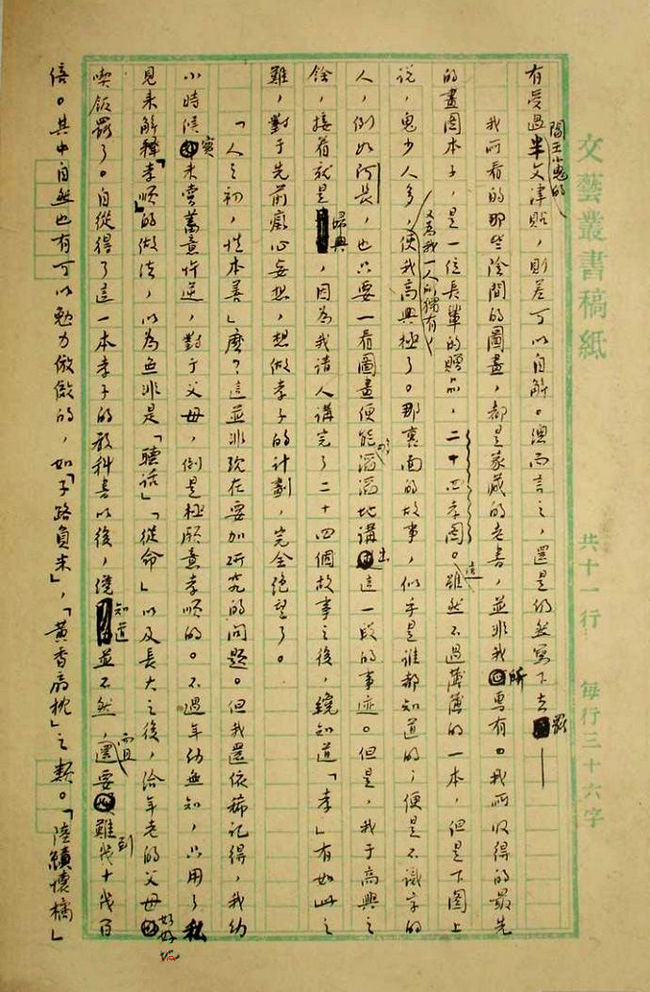 文藝叢書稿紙 共十一行 每行三十六字
有受過閻王小鬼的半文津貼,則差可以自解。總而言之,還是仍然寫下去罷——
我所看的那些陰間的圖畫,都是家藏的老書,並非我所專有。我所收得的最先
的畫圖本子,是一位長輩的贈品,二十四孝圖。這雖然不過薄薄的一本,但是下圖上
说,鬼少人多,又為我一人所獨有,使我高興極了。那裏面的故事,似乎是誰都知道的;便是不識字的
人,例如阿長,也只要一看圖畫便能夠滔滔地講出這一段的事迹。但是,我于高興之
餘,接着就是掃興,因為我請人講完了二十四個故事之後,纔知道「孝」有如此之
難,對于先前癡心妄想,想做孝子的計劃,完全絶望了。
「人之初,性本善」麽?這並非現在要加研究的問題。但我還依稀記得,我幼
小時候實未嘗蓄意忤逆,對于父母,倒是極願意孝順的。不過年幼無知,只用了私
見來解釋「孝順」的做法,以為無非是「聽話」「從命」以及長大之後,給年老的父母好好地
喫飯罷了。自從得了這一本孝子的教科書以後,纔知道並不然,而且還要難到幾十幾百
倍。其中自然也有可以勉力倣傚的,如「子路負米」,「黃香扇枕」之類。「陸績懷橘」